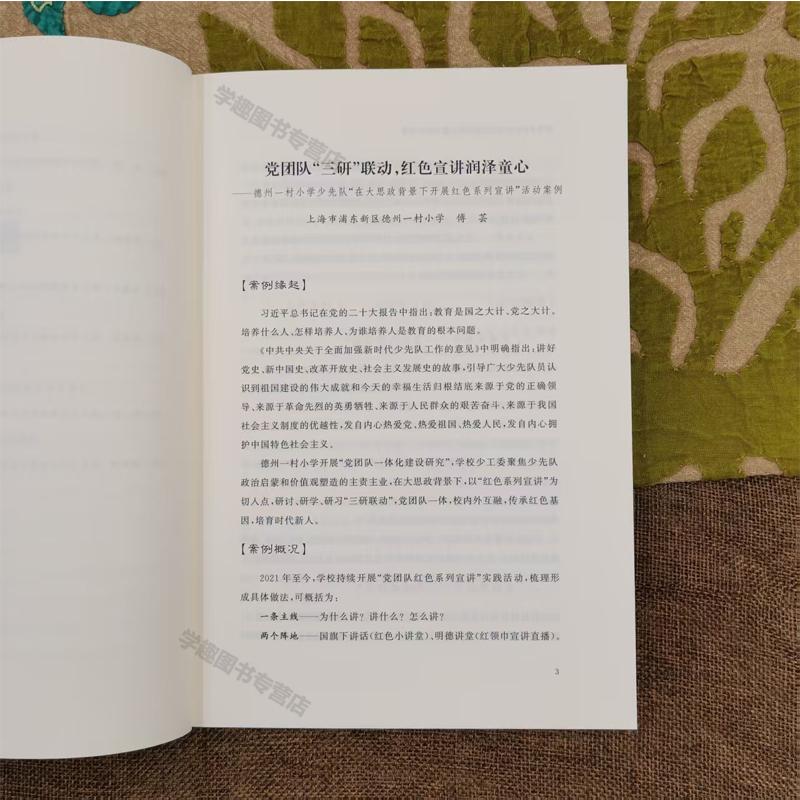 学趣图书专营店
党团队“三研”联动,红色宣讲润泽童心
——德州一村小学少先队“在大思政背景下开展红色系列宣讲”活动案例
上海市浦东新区德州一村小学 傅 芸
【案例缘起】
习近平总书记在党的二十大报告中指出:教育是国之大计、党之大计。
培养什么人、怎样培养人、为谁培养人是教育的根本问题。
《中共中央关于全面加强新时代少先队工作的意见》中明确指出:讲好
党史、新中国史、改革开放史、社会主义发展史的故事,引导广大少先队员认
识到祖国建设的伟大成就和今天的幸福生活归根结底来源于党的正确领
导、来源于革命先烈的英勇牺牲、来源于人民群众的艰苦奋斗、来源于我国
社会主义制度的优越性,发自内心热爱党、热爱祖国、热爱人民,发自内心拥
护中国特色社会主义。
德州一村小学开展“党团队一体化建设研究”,学校少工委聚焦少先队
政治启蒙和价值观塑造的主责主业,在大思政背景下,以“红色系列宣讲”为
切入点,研讨、研学、研习“三研联动”,党团队一体,校内外互融,传承红色基
因,培育时代新人。
【案例概况】
2021年至今,学校持续开展“党团队红色系列宣讲”实践活动,梳理形
成具体做法,可概括为:
一条主线——为什么讲?讲什么?怎么讲?
两个阵地——国旗下讲话(红色小讲堂)、明德讲堂(红领巾宣讲直播)。
学趣图书专营店
3